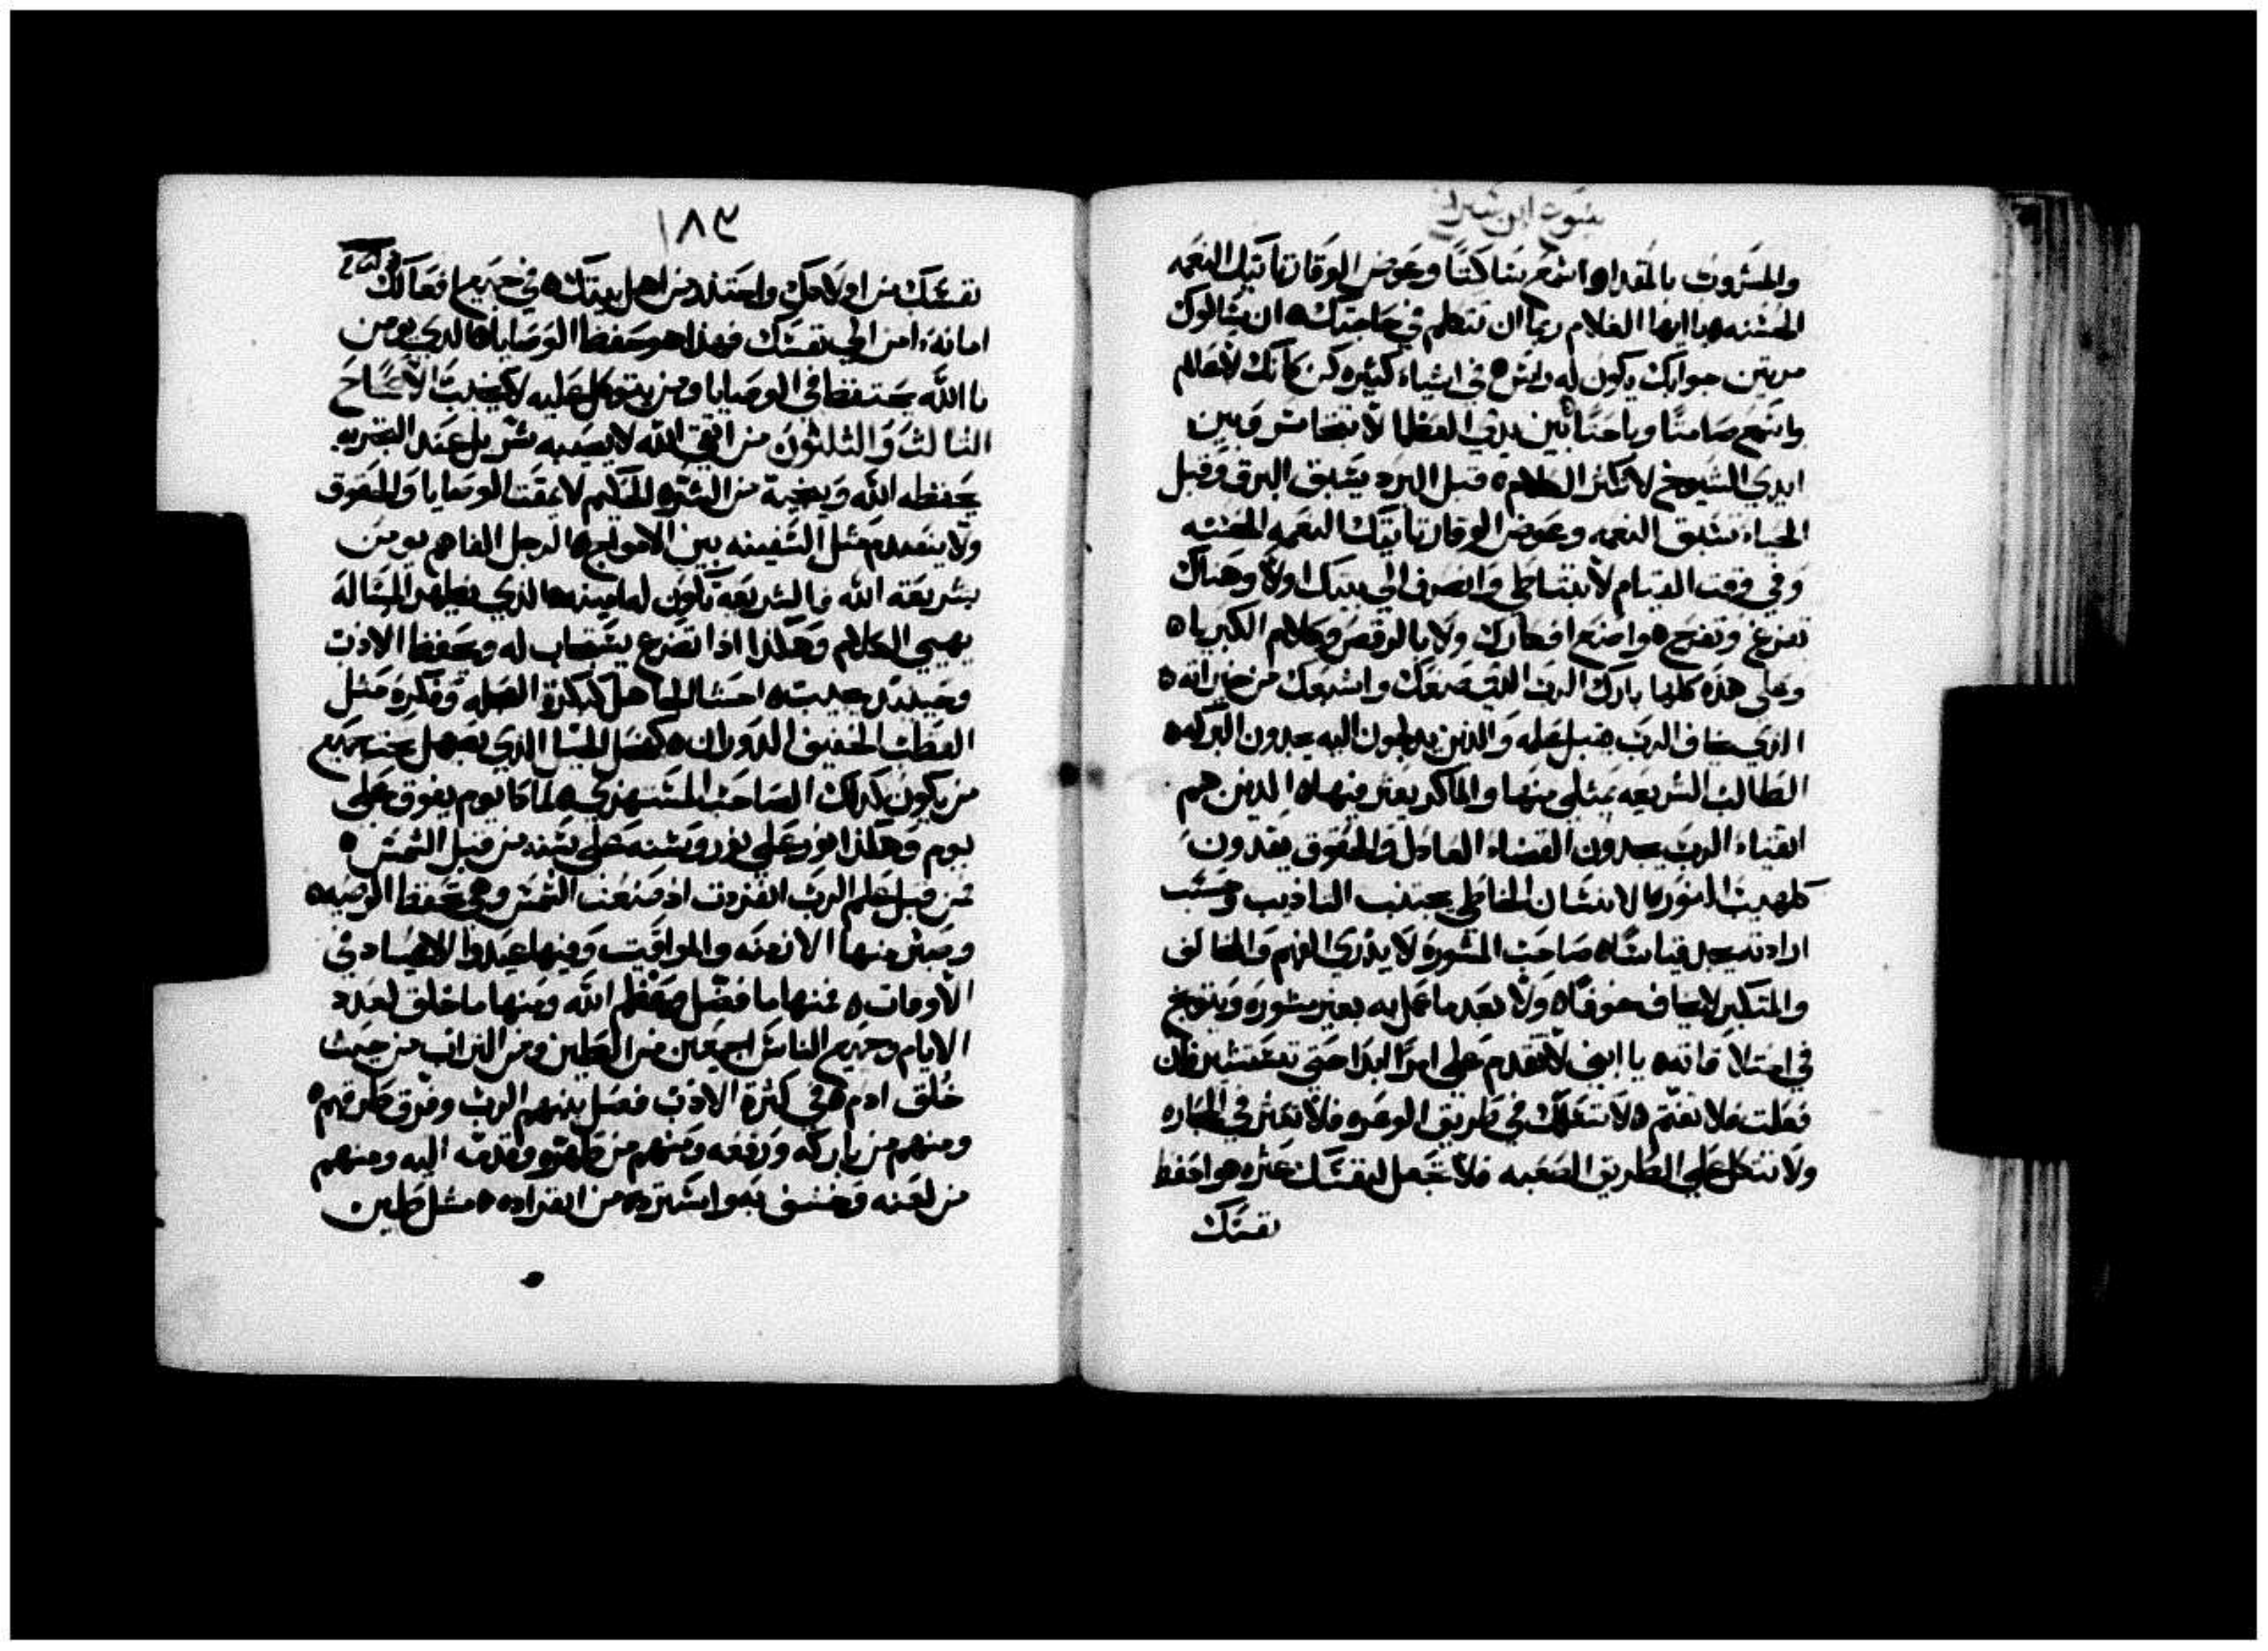 يشوع ابن شيراخ
والمشروب بالمقداره اسمع ساكتًا وعوض الوقار تاتيك النعمه
الحسنه ه يا ايها الغلام ربما ان تتكلم في حاجتك ه ان سالوك
مرتين جوابك يكون له راس ه في اشياء كثيره كن كانك لا عالم
واسمع صامتًا وباحثًا بين يدي العظما لا تتجاسر وبين
ايدي الشيوخ لا تكثر الكلام ه قبل البرد يسبق البرق وقبل
الحياء تسبق النعمه وعوض الوقار تاتيك النعمه الحسنه
وفي وقت القيام لا تتباطى وانصرف الى بيتك اولًا وهناك
تفرغ وتفرح ه واصنع افكارك ولا بالرقص وكلام الكبرياه
وعلى هذه كلها بارك الرب الذي صنعك واشبعك من خيراته ه
الذي يخاف الرب يقبل علمه والذين يدلجون اليه يجدون البركه ه
الطالب الشريعه يمتلي منها والماكر يعثر فيها ه الذين هم
اتقياء الرب يجدون القضاء العادل والحقوق يقدون
كلهيب النور ه الانسان الخاطي يجتنب التاديب وحسب
ارادته يجد قياسًا ه صاحب المشوره لا يذري الفهم والمخالف
والمتكبر لا يخاف خوفًا ه ولا بعد ما عمل به بغير مشوره ويتوبخ
في امتلا قاته ه يا ابني لا تتقدم على امرًا ابدا حتى تستشير فان
فعلت فلا تغتم ه لا تسلك في طريق الوعره فلا تعثر في الحجاره
ولا تتكل على الطريق الصعبه فلا تجعل لنفسك عثره ه واحفظ
نفسك
١٨٣
نفسك من اولادك واحتذر من اهل بيتك ه في جميع افعالك
امانة امن الى نفسك فهذا هو حفظ الوصايا ه الذي يومن
باالله يحتفظ في الوصايا ومن يتوكل عليه لا يخيب الاصحاح
الثالث والثلثون من اتقى الله لا يصيبه شر بل عند التجربه
يحفظه الله وينجية من الشرّ ه الحكيم لا يمقت الوصايا والحقوق
ولا ينصدم مثل السفينه بين الامواج ه الرجل الفاهم يومن
بشريعة الله والشريعه تكون له امينه ه الذي يظهر المساله
يهيي الكلام وهكذا اذا تضرع يستجاب له ويحفظ الادب
وحينئذ يجيب ه احشا الجاهل كبكرة العجله وفكره مثل
القطب الخفيف الدوران ه كفحل الخيل الذي يصهل تحت جميع
من يكون كذلك الصاحب المستهزي ه لماذا يوم يفوق على
يوم وهكذا نور على نور وسنه على سنه من قبل الشمس ه
فمن قبل علم الرب انفرزت اذ صنعت الشمس وهي تحفظ الوصيه ه
وميز منها الازمنه والمواقيت وفيها عيدوا الاعياد في
الاوقات ه فمنها ما فضل وعظم الله ومنها ما خلق لعدد
الايام وجميع الناس اجمعين من الطين ومن التراب من حيث
خُلق ادم ه في كثرة الادب فصل بينهم الرب وفرق طرقهم ه
ومنهم من باركه ورفعه ومنهم من طهره وقدمه اليه ومنهم
من لعنه وخسف به واسترده من انفراده ه مثل طين